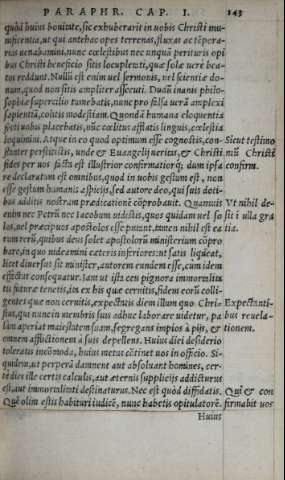 PARAPHR. CAP. I. 143
quòd huius bonitate, sic exhuberarit in uobis Christi mu-
nificentia, ut qui antehac opes terrenas, fluxas ac tēpora-
rias uenabamini, nunc cœlestibus nec unquā perituris opi
bus Christi beneficio sitis locupletati, quæ solæ uerè bea-
tos reddunt. Nullū est enim uel sermonis, uel scientiæ do-
num, quod non sitis ampliter assecuti. Dudū inanis philo-
sophiæ supercilio tumebatis, nunc pro falsa uerā amplexi
sapientiā, colitis modestiam. Quondā humana eloquentia
uobis placebatis, nūc cœlitus afflatis linguis, cœlestia
loquimini. Atque in eo quod optimum esse cognostis, con-
stanter perstitistis, unde & Euangelij ueritas, & Christi
fides per uos factа est illustrior confirmatiorq́;, dum ipsa
re declaratum est omnibus, quod in uobis gestum est, non
esse gestum humanis auspicijs, sed autore deo, qui suis doti-
bus additis nostram prædicationē cōprobauit. Quamuis
enim nec Petrū nec Iacobum uidistis, quos quidam uel so
los, uel præcipuos apostolos esse putant, tamen nihil est ea
rum rerū, quibus deus solet apostolorū ministerium cōpro
bare, in quo uideamini cæteris inferiores: ut satis liqueat,
licet diuersus sit minister, autorem eundem esse, cum idem
effectus consequatur. Iam ut iste ceu pignora immortalita
tis futuræ tenetis, ita ex his quæ cernitis, fidem eorū colli-
gentes quæ non cernitis, expectatis diem illum quo Chri-
stus, qui nunc in membris suis adhuc laborare uidetur, pa
làm aperiat maiestatem suam, segregans impios à pijs, &
omnem afflictionem à suis depellens. Huius diei desiderio
toleratis incōmoda, huius metus cōtinet uos in officio. Si-
quidem, ut perperā damnent aut absoluant homines, cer-
tè dies ille certis calculis, aut æternis supplicijs addicturus
est, aut immortalitati destinaturus. Nec est quòd diffidatis.
Quē olim estis habituri iudicē, nunc habetis opitulatorē.
Huius
Sicut testimo
niū Christi
confirm.
Vt nihil de-
sit i ulla gra
tia.
Expectanti-
bus reuela-
tionem.
Qui & con
firmabit uos